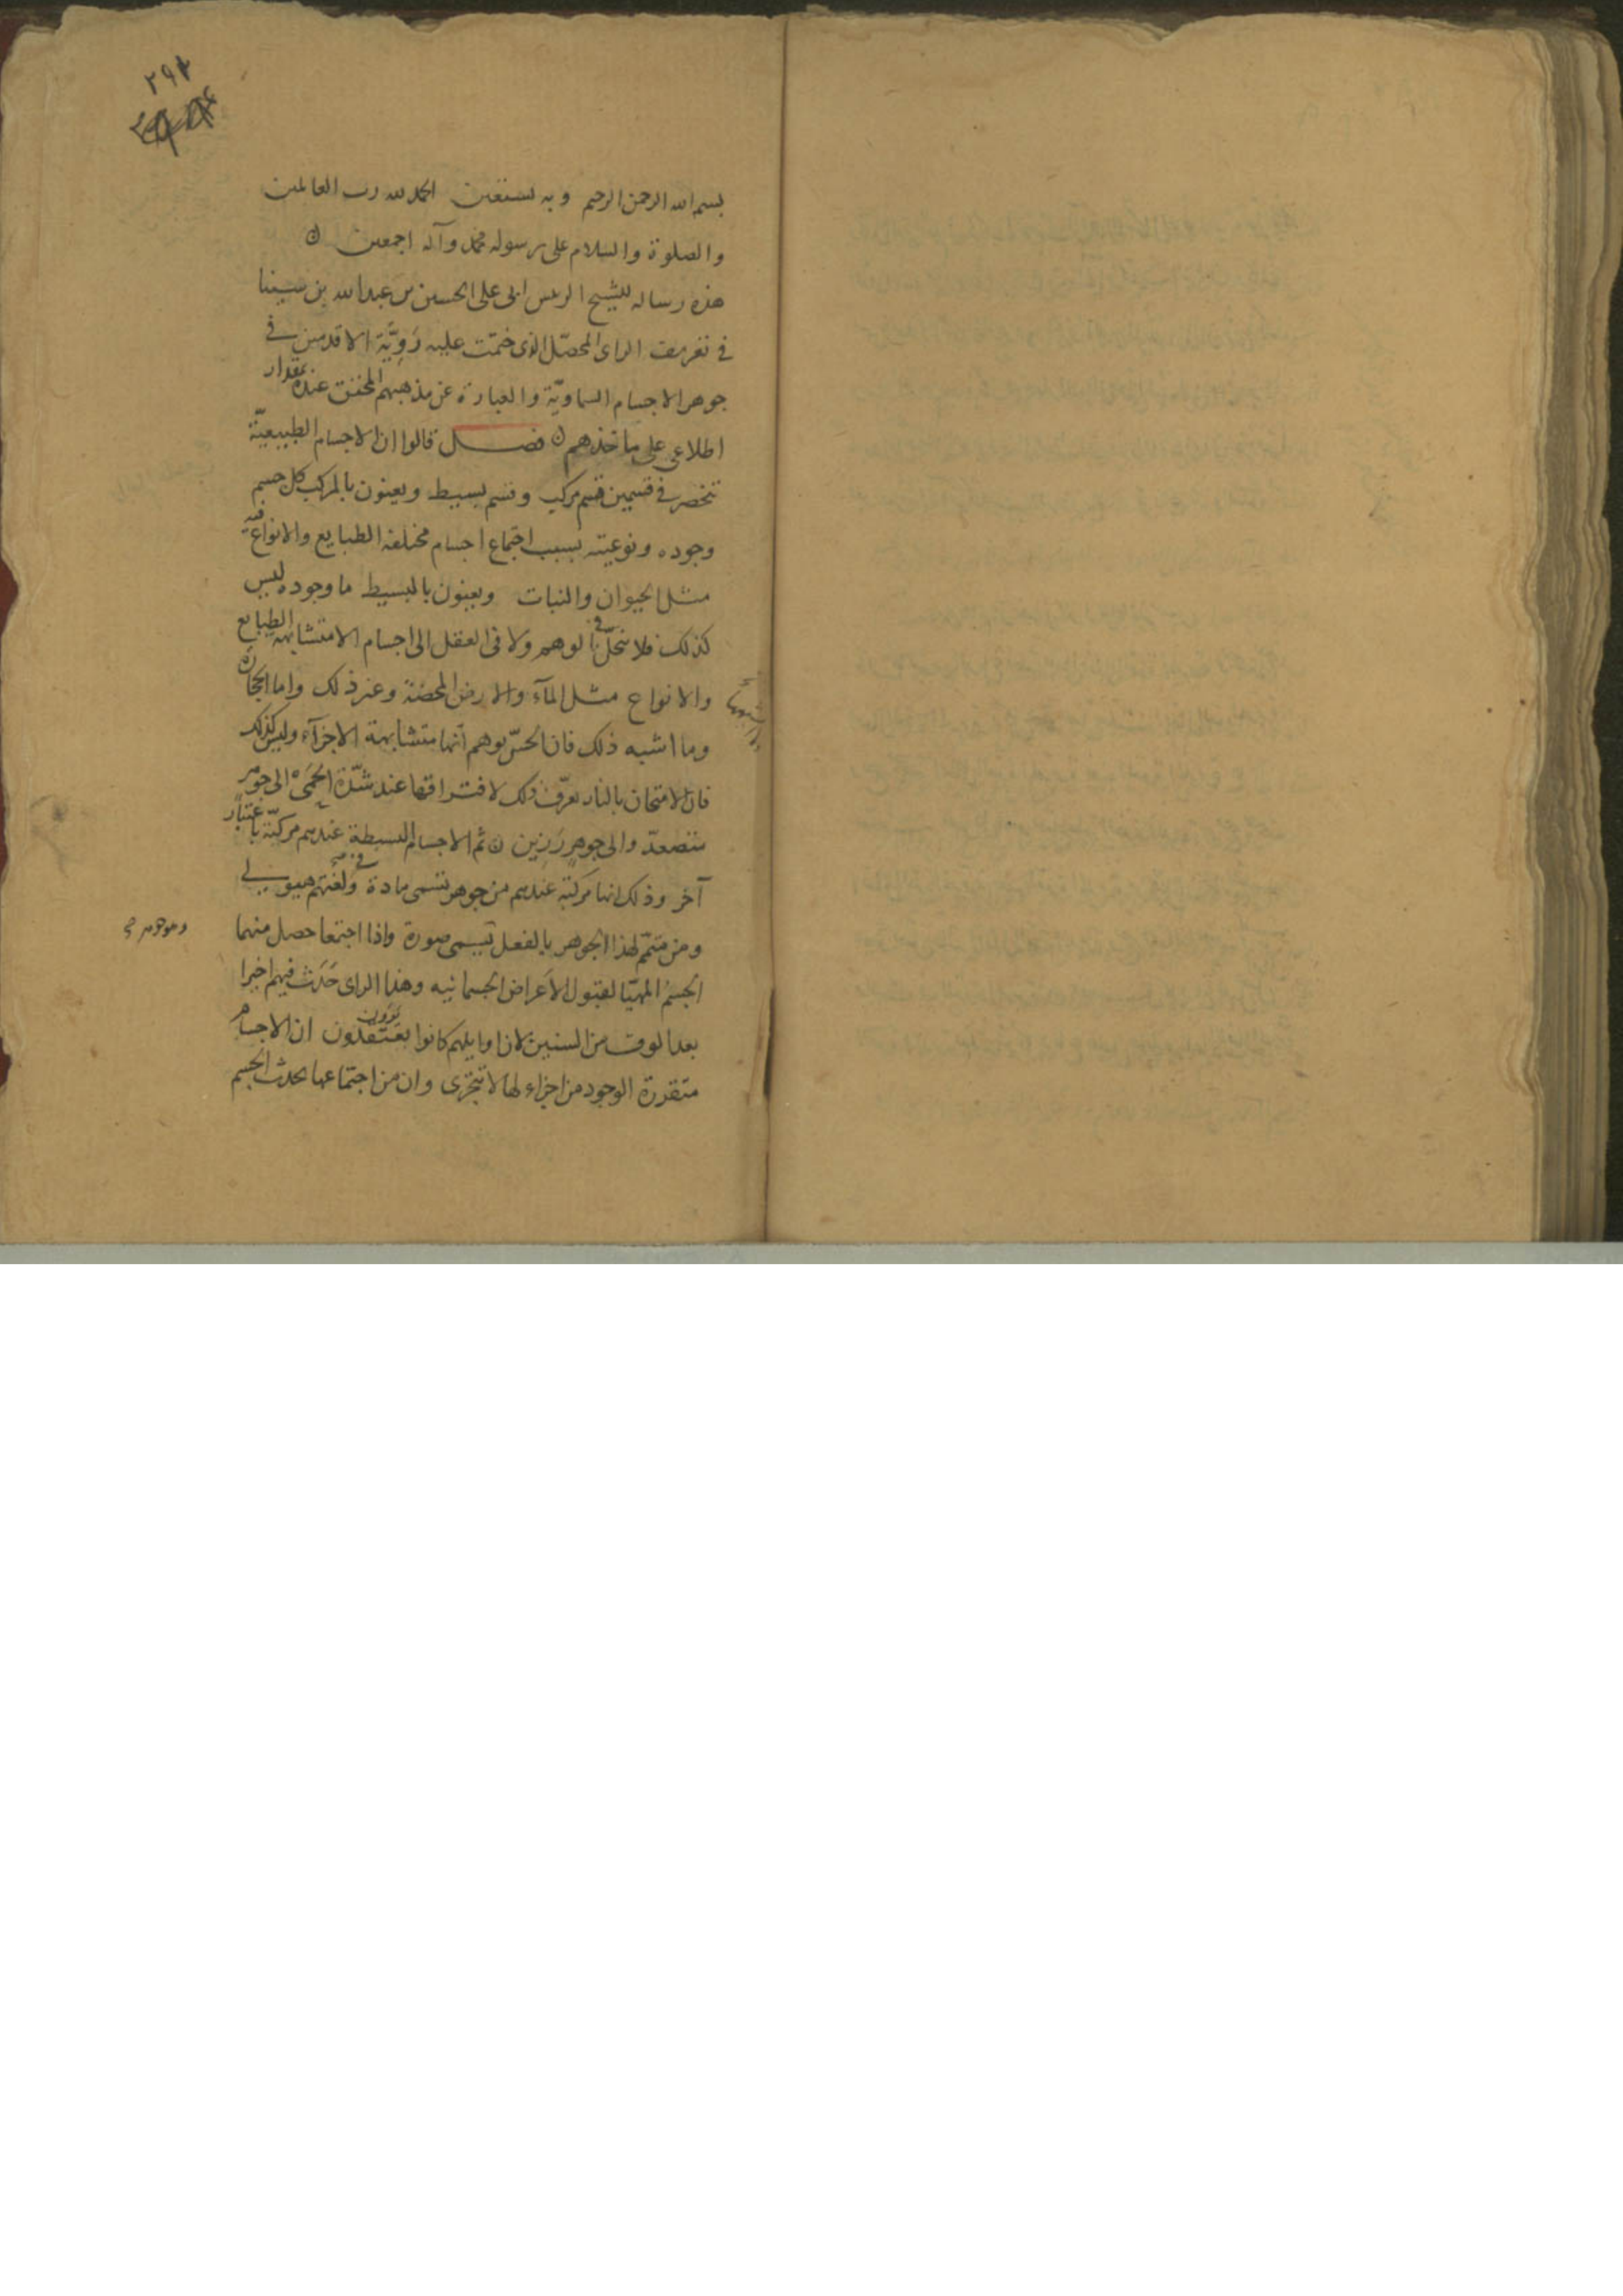 ٢٩٢
بسم الله الرحمن الرحيم وبه نستعين الحمد لله رب العالمين
والصلوة والسلام على رسوله محمد وآله اجمعين ن
هذه رساله للشيخ الرئيس ابى على الحسين بن عبد الله بن سينا
فى تعريف الراى المحصّل الذى ختمت عليه رَوِيَّة الاقدمين فى
جوهر الاجسام السماويّة والعبارة عن مذهبهم المحقق عنده بمقدار
اطلاعى على مآخذهم ن فصل قالوا ان الاجسام الطبيعيّة
تنحصر فى قسمين قسم مركب وقسم بسيط ويعنون بالمركب كل جسم
وجوده ونوعيته بسبب اجتماع اجسام مختلفه الطبايع والانواع فيه
مثل الحيوان والنبات ويعنون بالبسيط ما وجوده ليس
كذلك فلا ينحلّ فى الوهم ولا فى العقل الى اجسام الا متشابهة الطبايع
والانواع مثل المآء والارض المحضة وغير ذلك واما الحجارة
وما اشبه ذلك فان الحسّ يوهم انها متشابهة الاجزآء وليس كذلك
فان الامتحان بالنار يعرّف ذلك لافتراقها عند شدّة الحَمىْ الى جوهر
متصعدّ والى جوهرٍ رَزين ن ثم الاجسام البسيطة عندهم مركبّة باعتبار
آخر وذلك انها مركبّة عندهم من جوهر تسمى مادة وفى لُغتهم هيولى
ومن متمّم لهذا الجوهر بالفعل يسمى صورة واذا اجتمعا حصل منهما
وهو جوهر
الجسمُ المهيّا لقبول الاَعراض الجسمانيه وهذا الراى حَدَث فيهم اخيرا
بعد الوف من السنين لان اوايلهم كانوا يعتقدون ان الاجسام
يَرَوْن
متقررة الوجود من اجزاء لها لا تتجزى وان من اجتماعها يحدث الجسم